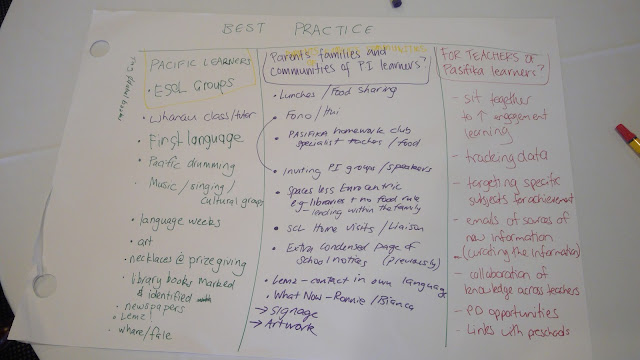 BEST PRACTICE
PACIFIC LEARNERS
• ESOL Groups
• Whanau class/tutor
• First language
• Pacific drumming
• Music / singing /
cultural groups
• language weeks
• art
• necklaces @ prizegiving
• library books marked
& identified
• newspapers
• Leme
• whare/fale
Parents families and
communities of PI learners?
• Lunches / Food sharing
• Fono / Hui
• PASIFIKA homework club
specialist teachers / food
• Inviting PI groups / speakers
• Spaces less Eurocentric
eg - libraries & no food rule
- lending within the family
• SCL Home visits / Liaison
• Extra condensed page of
school notices (Previously)
• Leme - contact in own language
• What Now - Ronnie / Bianca
→ Signage
→ Artwork
FOR TEACHERS of
Pasifika learners?
- sit together
to ↑ engagement
learning
- tracking data
- targeting specific
subjects for achievement
- emails of sources of
new information
• (curating the information)
- collaboration of
knowledge across teachers
- PD opportunities
- Links with preschools